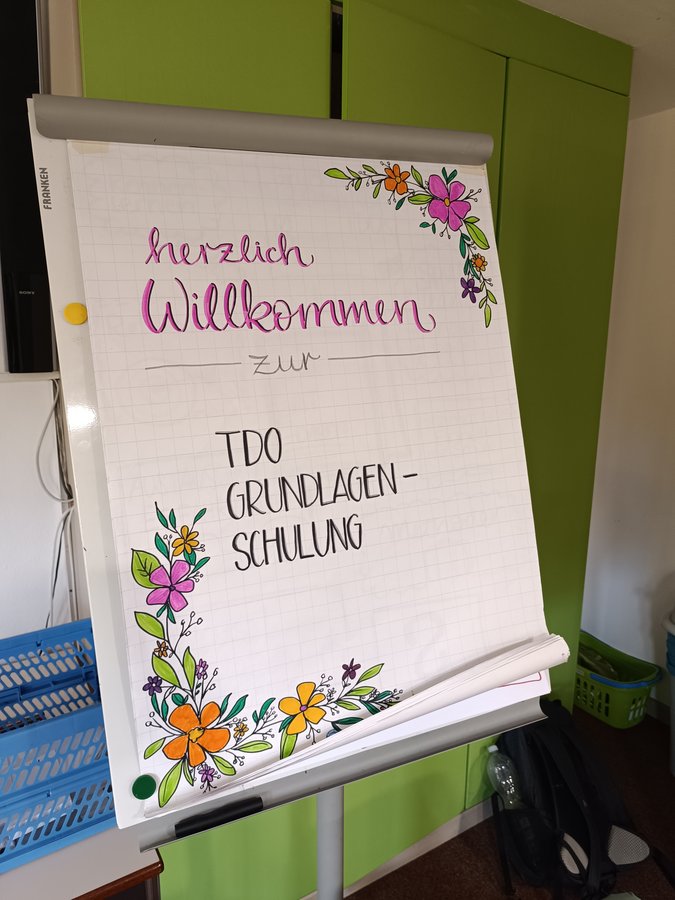 FRANKEN
SONY
herzlich
Willkommen
zur
TDO
GRUNDLAGEN-
SCHULUNG